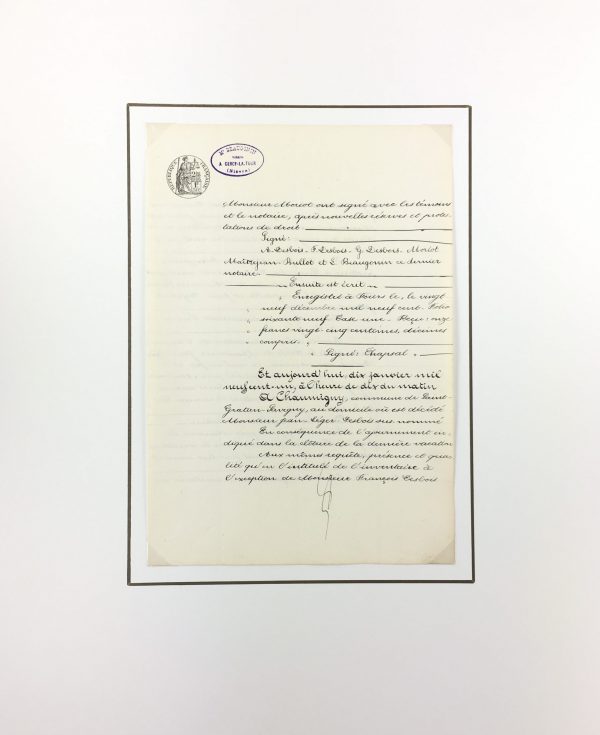 RÉPUBLIQUE FRANÇAISE
Me BEAUGONIN
NOTAIRE
A CERCY-LA-TOUR
(Nièvre)
Monsieur Morlot ont signé avec les témoins
et le notaire, après nouvelles réserves et protes-
tations de droit
Signé:
A. Desbois - F. Desbois - G. Desbois - Morlot
Maîtrejean - Bullot et L. Beaugonin ce dernier
notaire.
Ensuite est écrit
" Enregistré à Fours le, le vingt
" neuf décembre mil neuf cent. Folio
" soixante neuf Case une - Reçu: onze
" francs vingt-cinq centimes, décimes
" compris.
" Signé: Chapsal "
Et aujourd'hui, dix janvier mil
neuf cent-un, à l'heure de dix du matin
A Chaumigny, commune de Saint-
Gratien-Savigny, au domicile où est décédé
Monsieur Jean-Léger Desbois sus nommé
En conséquence de l'ajournement in-
diqué dans la clôture de la dernière vacation
Aux mêmes requête, présence et quali-
té qu'en l'intitulé de l'inventaire à
l'exception de Monsieur François Desbois